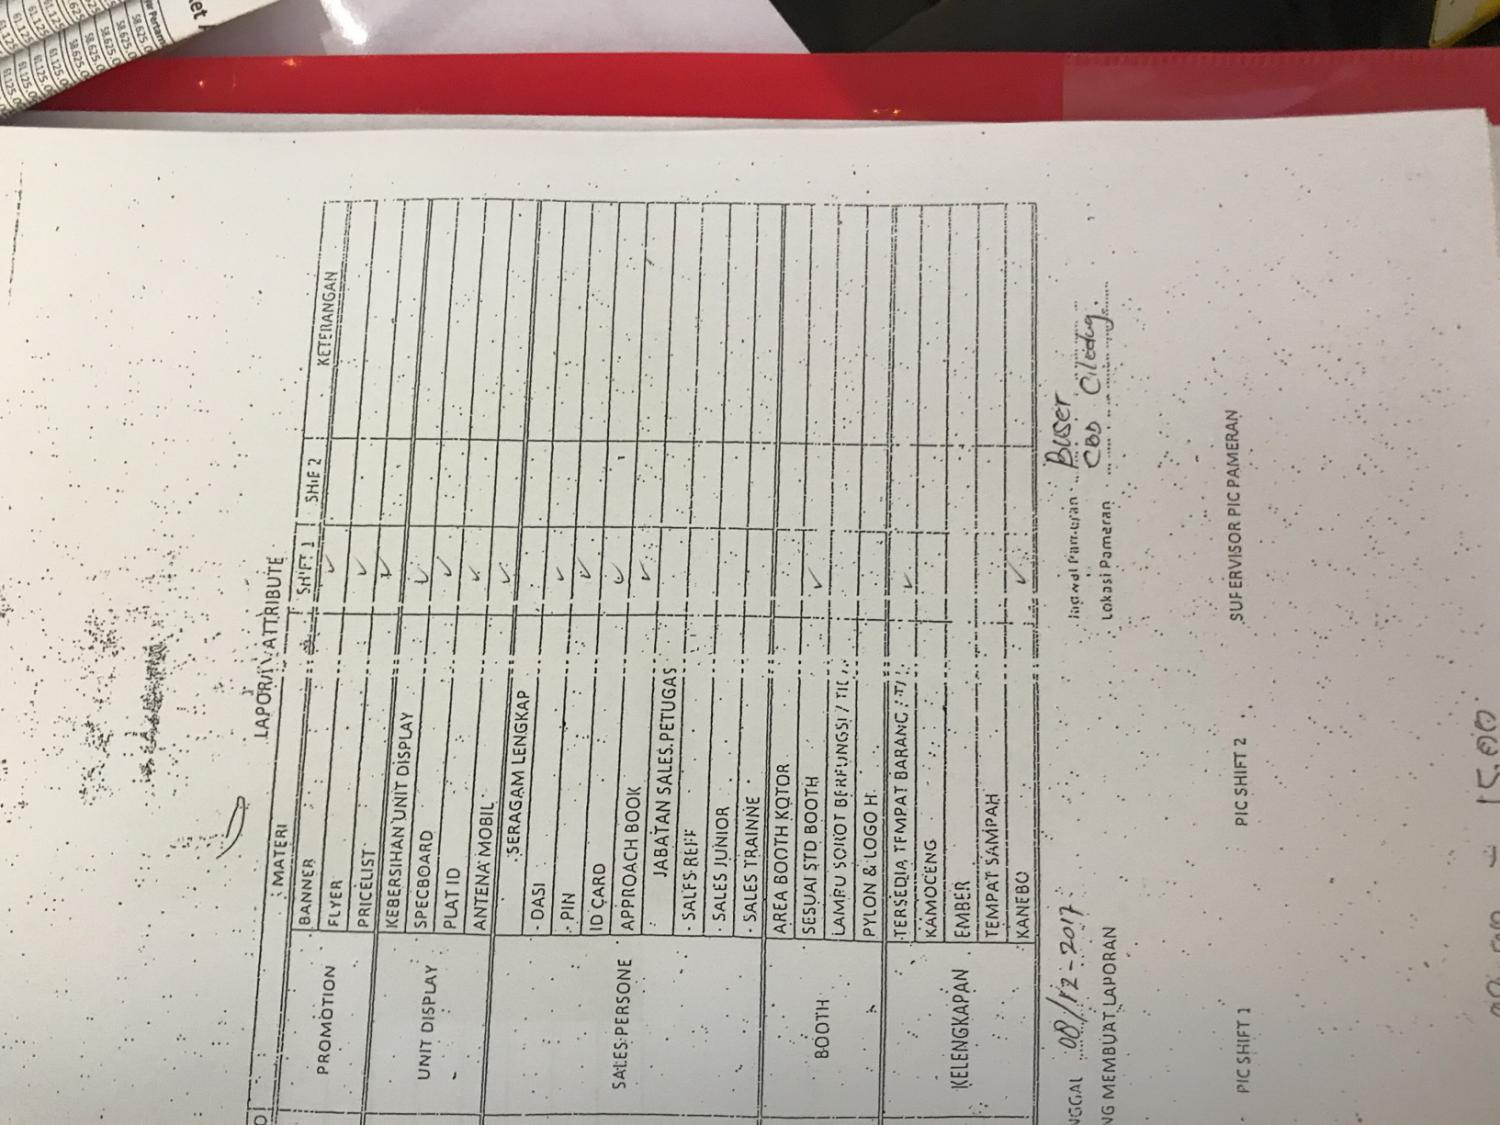 LAPORAN ATTRIBUTE
MATERI SHIFT 1 SHIF 2 KETERANGAN
PROMOTION
BANNER ✓
FLYER ✓
PRICELIST ✓
UNIT DISPLAY
KEBERSIHAN UNIT DISPLAY ✓
SPECBOARD ✓
PLAT ID ✓
ANTENA MOBIL ✓
SALES PERSONE
SERAGAM LENGKAP
- DASI ✓
- PIN ✓
ID CARD ✓
APPROACH BOOK ✓
JABATAN SALES PETUGAS
- SALES REFF
- SALES JUNIOR
- SALES TRAINNE
BOOTH
AREA BOOTH KOTOR
SESUAI STD BOOTH ✓
LAMPU SOROT BERFUNGSI /
PYLON & LOGO H
KELENGKAPAN
TERSEDIA TEMPAT BARANG ✓
KAMOCENG
EMBER
TEMPAT SAMPAH
KANEBO ✓
NGGAL 08/12-2017 Pameran Buser
NG MEMBUAT LAPORAN Lokasi Pameran CBD Ciledug
PIC SHIFT 1 PIC SHIFT 2 SUFERVISOR PIC PAMERAN
15.00